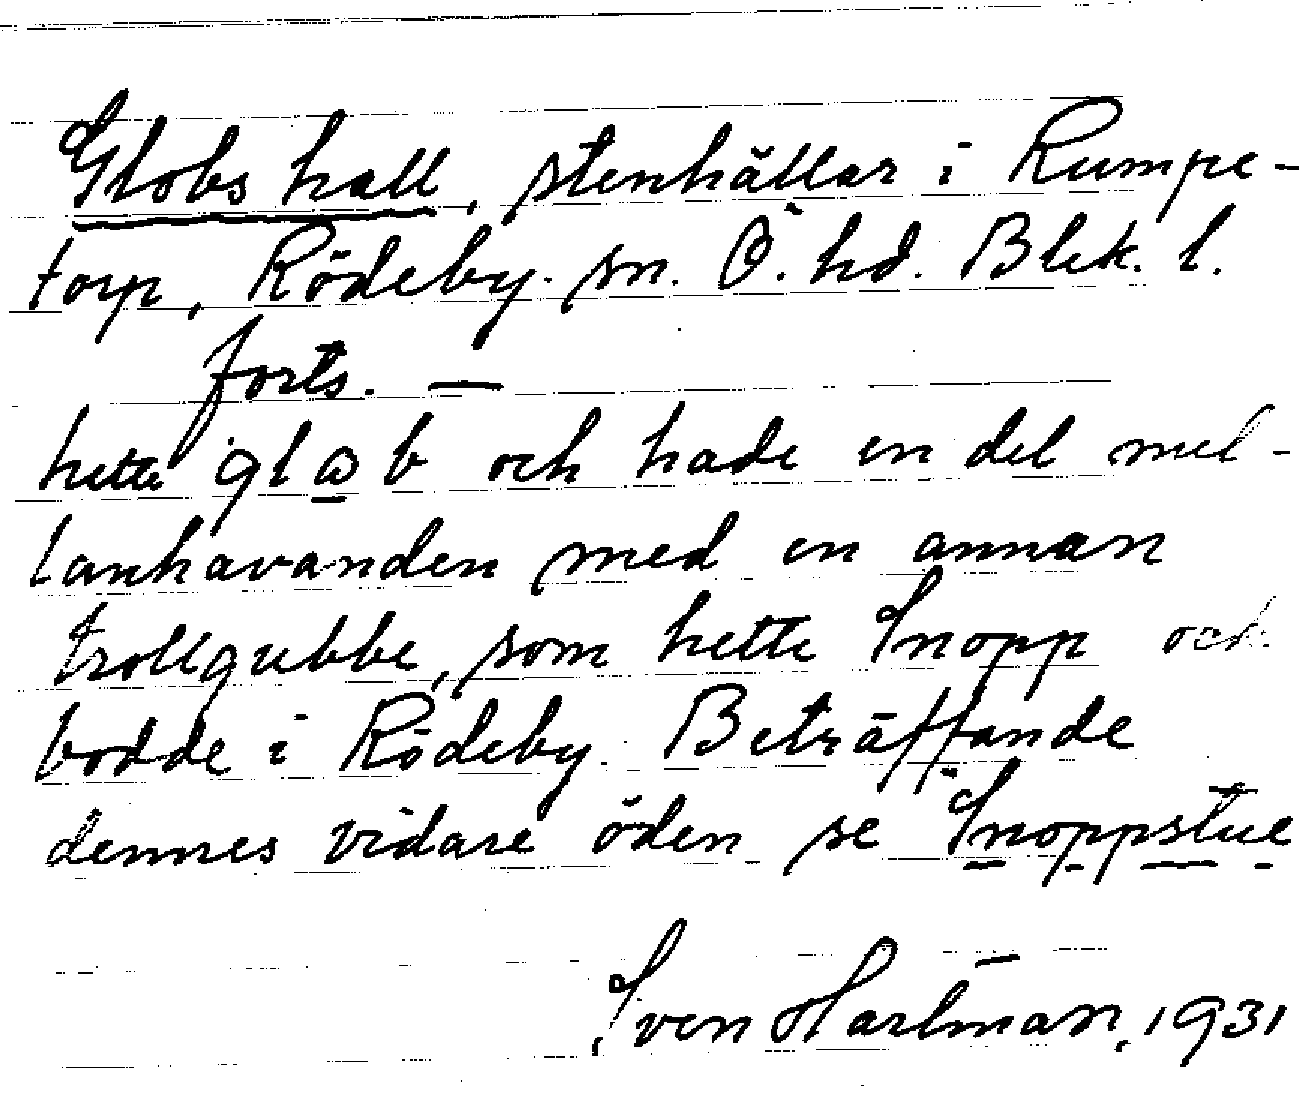 Globs hall, stenhällar i Rumpe-
torp, Rödeby. sn. Ö. hd. Blek. l.
forts. —
hette glob och hade en del mel-
lanhavanden med en annan
trollgubbe, som hette Snopp och
bodde i Rödeby. Beträffande
dennes vidare öden se Snoppstue
Sven Hartman, 1931